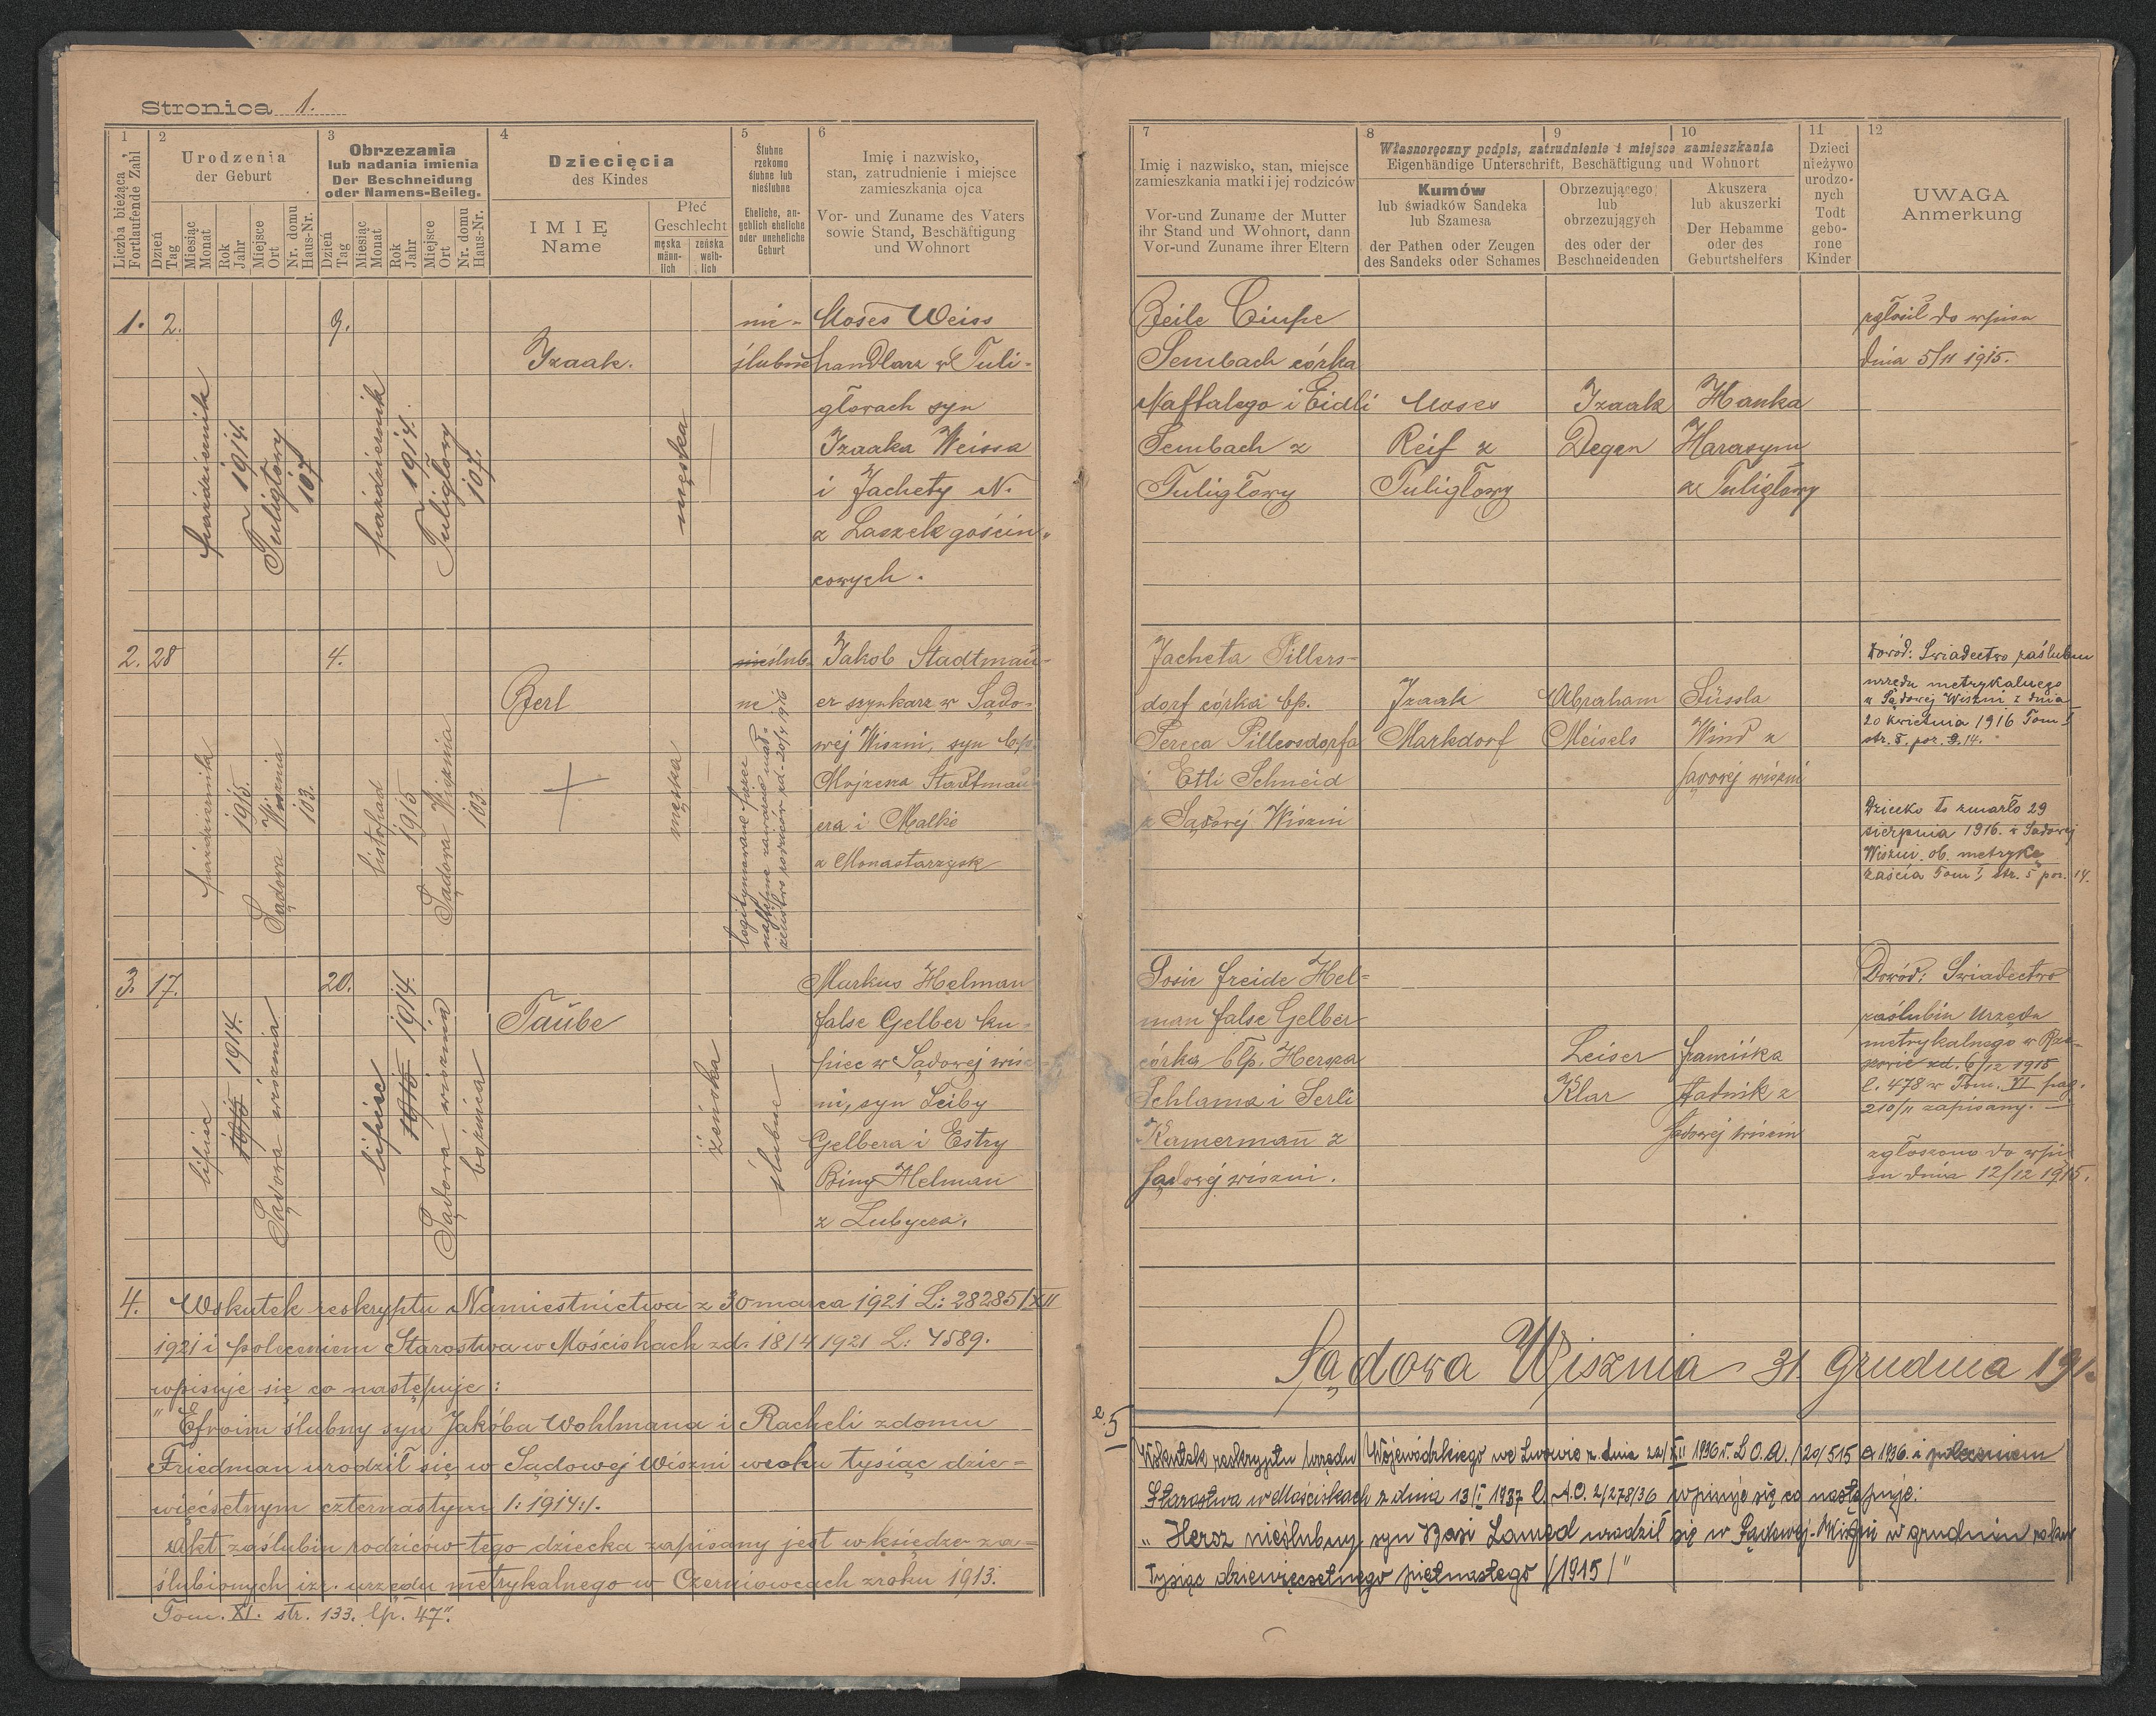 Stronica 1.
1
2
3
4
5
6
Liczba bieżąca
Fortlaufende Zahl
Urodzenia
der Geburt
Obrzezania
lub nadania imienia
Der Beschneidung
oder Namens-Beileg.
Dziecięcia
des Kindes
Ślubne
rzekomo
ślubne lub
nieślubne
Eheliche, an-
geblich eheliche
oder uneheliche
Geburt
Imię i nazwisko,
stan, zatrudnienie i miejsce
zamieszkania ojca
Vor- und Zuname des Vaters
sowie Stand, Beschäftigung
und Wohnort
Dzień
Tag
Miesiąc
Monat
Rok
Jahr
Miejsce
Ort
Nr. domu
Haus-Nr.
Dzień
Tag
Miesiąc
Monat
Rok
Jahr
Miejsce
Ort
Nr. domu
Haus-Nr.
IMIĘ
Name
Płeć
Geschlecht
męska
männ-
lich
żeńska
weib-
lich
1. 2.
październik
1914.
Tuligłowy
107
9.
październik
1914.
Tuligłowy
107.
Izaak.
męska
nie-
ślubne
Moses Weiss
handlarz w Tuli-
głowach syn
Izaaka Weissa
i Jachety N.
z Laszek gościn-
cowych.
2. 28
październik
1915.
Sądowa Wisznia
103.
4.
listopad
1915
Sądowa Wisznia
103.
Berl
męska
nieślub-
ne
legitymowane przez
następne zawarcie mał-
żeństwa rodziców zd. 20/4 1916
Jakob Stadtmau-
er szynkarz w Sądo-
wej Wiszni, syn bp.
Mojżesza Stadtmau-
era i Malke
z Monastarzysk
3. 17.
lipiec
1915 1914.
Sądowa wisznia
20.
lipiec
1915 1914.
Sądowa wisznia
bożnica
Taübe
żeńska
ślubne
Markus Helman
false Gelber ku-
piec w Sądowej wisz-
ni, syn Leiby
Gelbera i Estry
Biny Helman
z Lubycza.
4. Wskutek reskryptu Namiestnictwa z 30 marca 1921 L: 28285/XII
1921 i poleceniem Starostwa w Mościskach zd. 18/4 1921 L: 7589.
wpisuje się co następuje:
"Efroim ślubny syn Jakóba Wohlmana i Racheli z domu
Friedman urodził się w Sądowej Wiszni w roku tysiąc dzie-
więćsetnym czternastym /:1914:/.
Akt zaślubin rodziców tego dziecka zapisany jest w księdze za-
ślubionych izr. urzędu metrykalnego w Czerniowcach z roku 1913.
Tom. XI. str. 133. lp. 47".
7
8
9
10
11
12
Imię i nazwisko, stan, miejsce
zamieszkania matki i jej rodziców
Vor-und Zuname der Mutter
ihr Stand und Wohnort, dann
Vor-und Zuname ihrer Eltern
Własnoręczny podpis, zatrudnienie i miejsce zamieszkania
Eigenhändige Unterschrift, Beschäftigung und Wohnort
Kumów
lub świadków Sandeka
lub Szamesa
der Pathen oder Zeugen
des Sandeks oder Schames
Obrzezującego
lub
obrzezujących
des oder der
Beschneidenden
Akuszera
lub akuszerki
Der Hebamme
oder des
Geburtshelfers
Dzieci
nieżywo
urodzo-
nych
Todt
gebo-
rone
Kinder
UWAGA
Anmerkung
Beile Ciupe
Sembach córka
Naftalego i Eidli
Sembach z
Tuligłowy
Moses
Reif z
Tuligłowy
Izaak
Degen
Hanka
Harasym
z Tuligłowy
zgłosił do wpisu
dnia 5/11 1915.
Jacheta Pillers-
dorf córka bp.
Pereca Pillersdorfa
i Etli Schneid
z Sądowej Wiszni
Izaak
Markdorf
Abraham
Meisels
Süssla
Wind z
sądowej wiszni
Dowód: Świadectwo zaślubin
urzędu metrykalnego
w Sądowej Wiszni z dnia
20 kwietnia 1916 Tom I
str. 5. poz. 14.
Dziecko to zmarło 29
sierpnia 1916. w Sadowej
Wiszni ob. metrykę
zejścia Tom I, str. 5 poz. 14.
Sosie Freide Hel-
man false Gelber
córka bp. Hersza
Schlama i Serli
Kamerman̄ z
sądowej wiszni.
Leiser
Klar
Franciśka
Stadnik z
sądowej wiszni
Dowód: Świadectwo
zaślubin Urzędu
metrykalnego w
zd. 6/12 1915
l. 478 w Tom. VI pag.
210/11 zapisany.
zgłoszono do wpi-
su dnia 12/12 1915.
Sądowa Wisznia 31 grudnia 191
5
Wskutek reskryptu Urzędu Wojewódzkiego we Lwowie z dnia 22/XII 1936 r. L.O.A./20/515 a 1936 i poleceniem
Starostwa w Mościskach z dnia 13/I 1937 l. A.O. 2/278/36 wpisuje się co następuje:
"Hersz nieślubny syn Basi Lamed urodził się w Sądowej-Wiszni w grudniu roku
tysiąc dziewięćsetnego piętnastego /1915/"